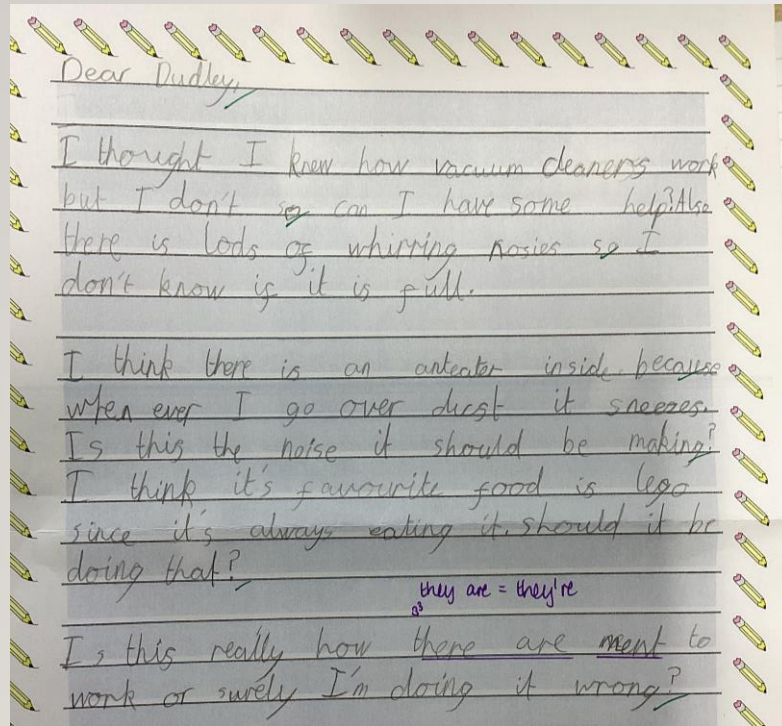 Dear Dudley,
I thought I knew how vacuum cleaners work
but I don't so can I have some help? Also
there is lods of whirring nosies so I
don't know if it is full.
I think there is an anteator inside because
when ever I go over dust it sneezes.
Is this the noise it should be making?
I think it's favourite food is lego
since it's always eating it. should it be
doing that?
they are = they're
Is this really how there are ment to
work or surely I'm doing it wrong?